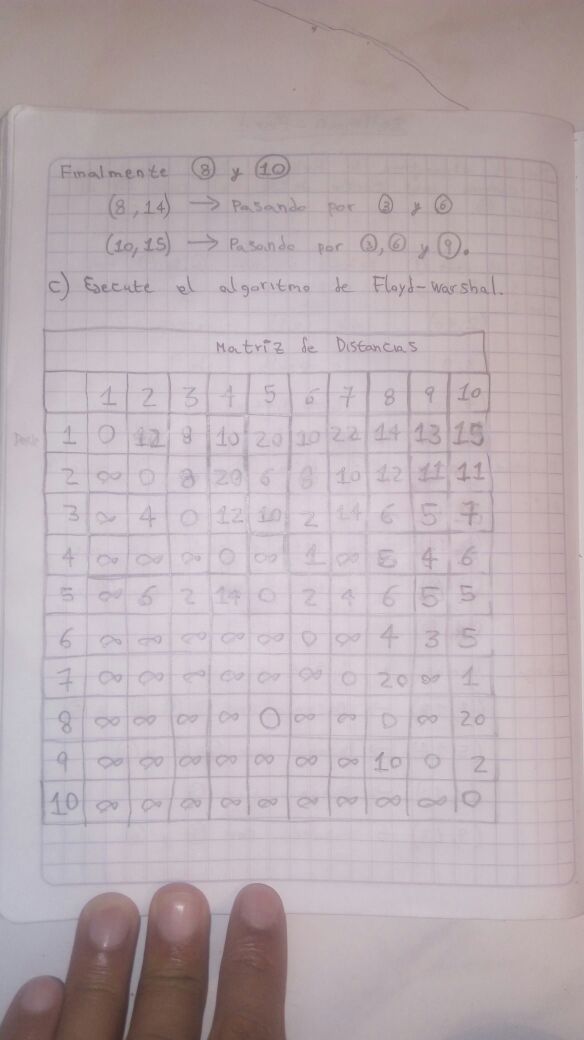 Finalmente ⑧ y ⑩
(8,14) → Pasando por ③ y ⑥
(10,15) → Pasando por ③,⑥ y ⑨.
c) Execute el algoritmo de Floyd-Warshal.
Matriz de Distancias
1 2 3 4 5 6 7 8 9 10
1 0 12 8 10 20 10 22 14 13 15
2 ∞ 0 8 20 6 8 10 12 11 11
3 ∞ 4 0 12 10 2 14 6 5 7
4 ∞ ∞ ∞ 0 ∞ 1 ∞ 5 4 6
5 ∞ 6 2 14 0 2 4 6 5 5
6 ∞ ∞ ∞ ∞ ∞ 0 ∞ 4 3 5
7 ∞ ∞ ∞ ∞ ∞ ∞ 0 20 ∞ 1
8 ∞ ∞ ∞ ∞ 0 ∞ ∞ 0 ∞ 20
9 ∞ ∞ ∞ ∞ ∞ ∞ ∞ 10 0 2
10 ∞ ∞ ∞ ∞ ∞ ∞ ∞ ∞ ∞ 0